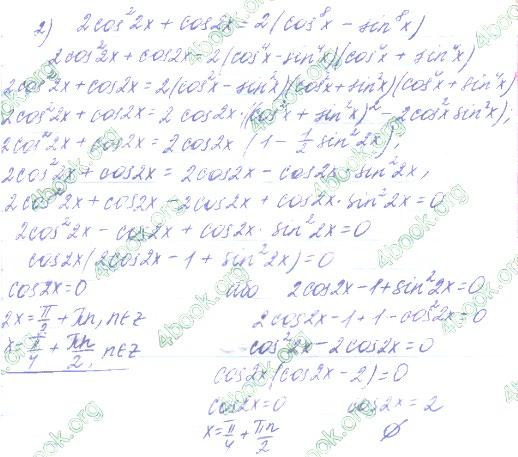 2) 2cos²2x + cos2x = 2(cos⁸x - sin⁸x)
2cos²2x + cos2x = 2(cos⁴x - sin⁴x)(cos⁴x + sin⁴x)
2cos²2x + cos2x = 2(cos²x - sin²x)(cos²x + sin²x)(cos⁴x + sin⁴x)
2cos²2x + cos2x = 2 cos2x·((cos²x + sin²x)² - 2cos²x sin²x);
2cos²2x + cos2x = 2cos2x (1 - 1/2 sin²2x);
2cos²2x + cos2x = 2cos2x - cos2x · sin²2x,
2cos²2x + cos2x - 2cos2x + cos2x · sin²2x = 0
2cos²2x - cos2x + cos2x · sin²2x = 0
cos2x(2cos2x - 1 + sin²2x) = 0
cos2x = 0 або 2cos2x - 1 + sin²2x = 0
2x = π/2 + πn, n∈z 2cos2x - 1 + 1 - cos²2x = 0
x = π/4 + πn/2, n∈z cos²2x - 2cos2x = 0
cos2x(cos2x - 2) = 0
cos2x = 0 cos2x = 2
x = π/4 + πn/2 ∅
4book.org